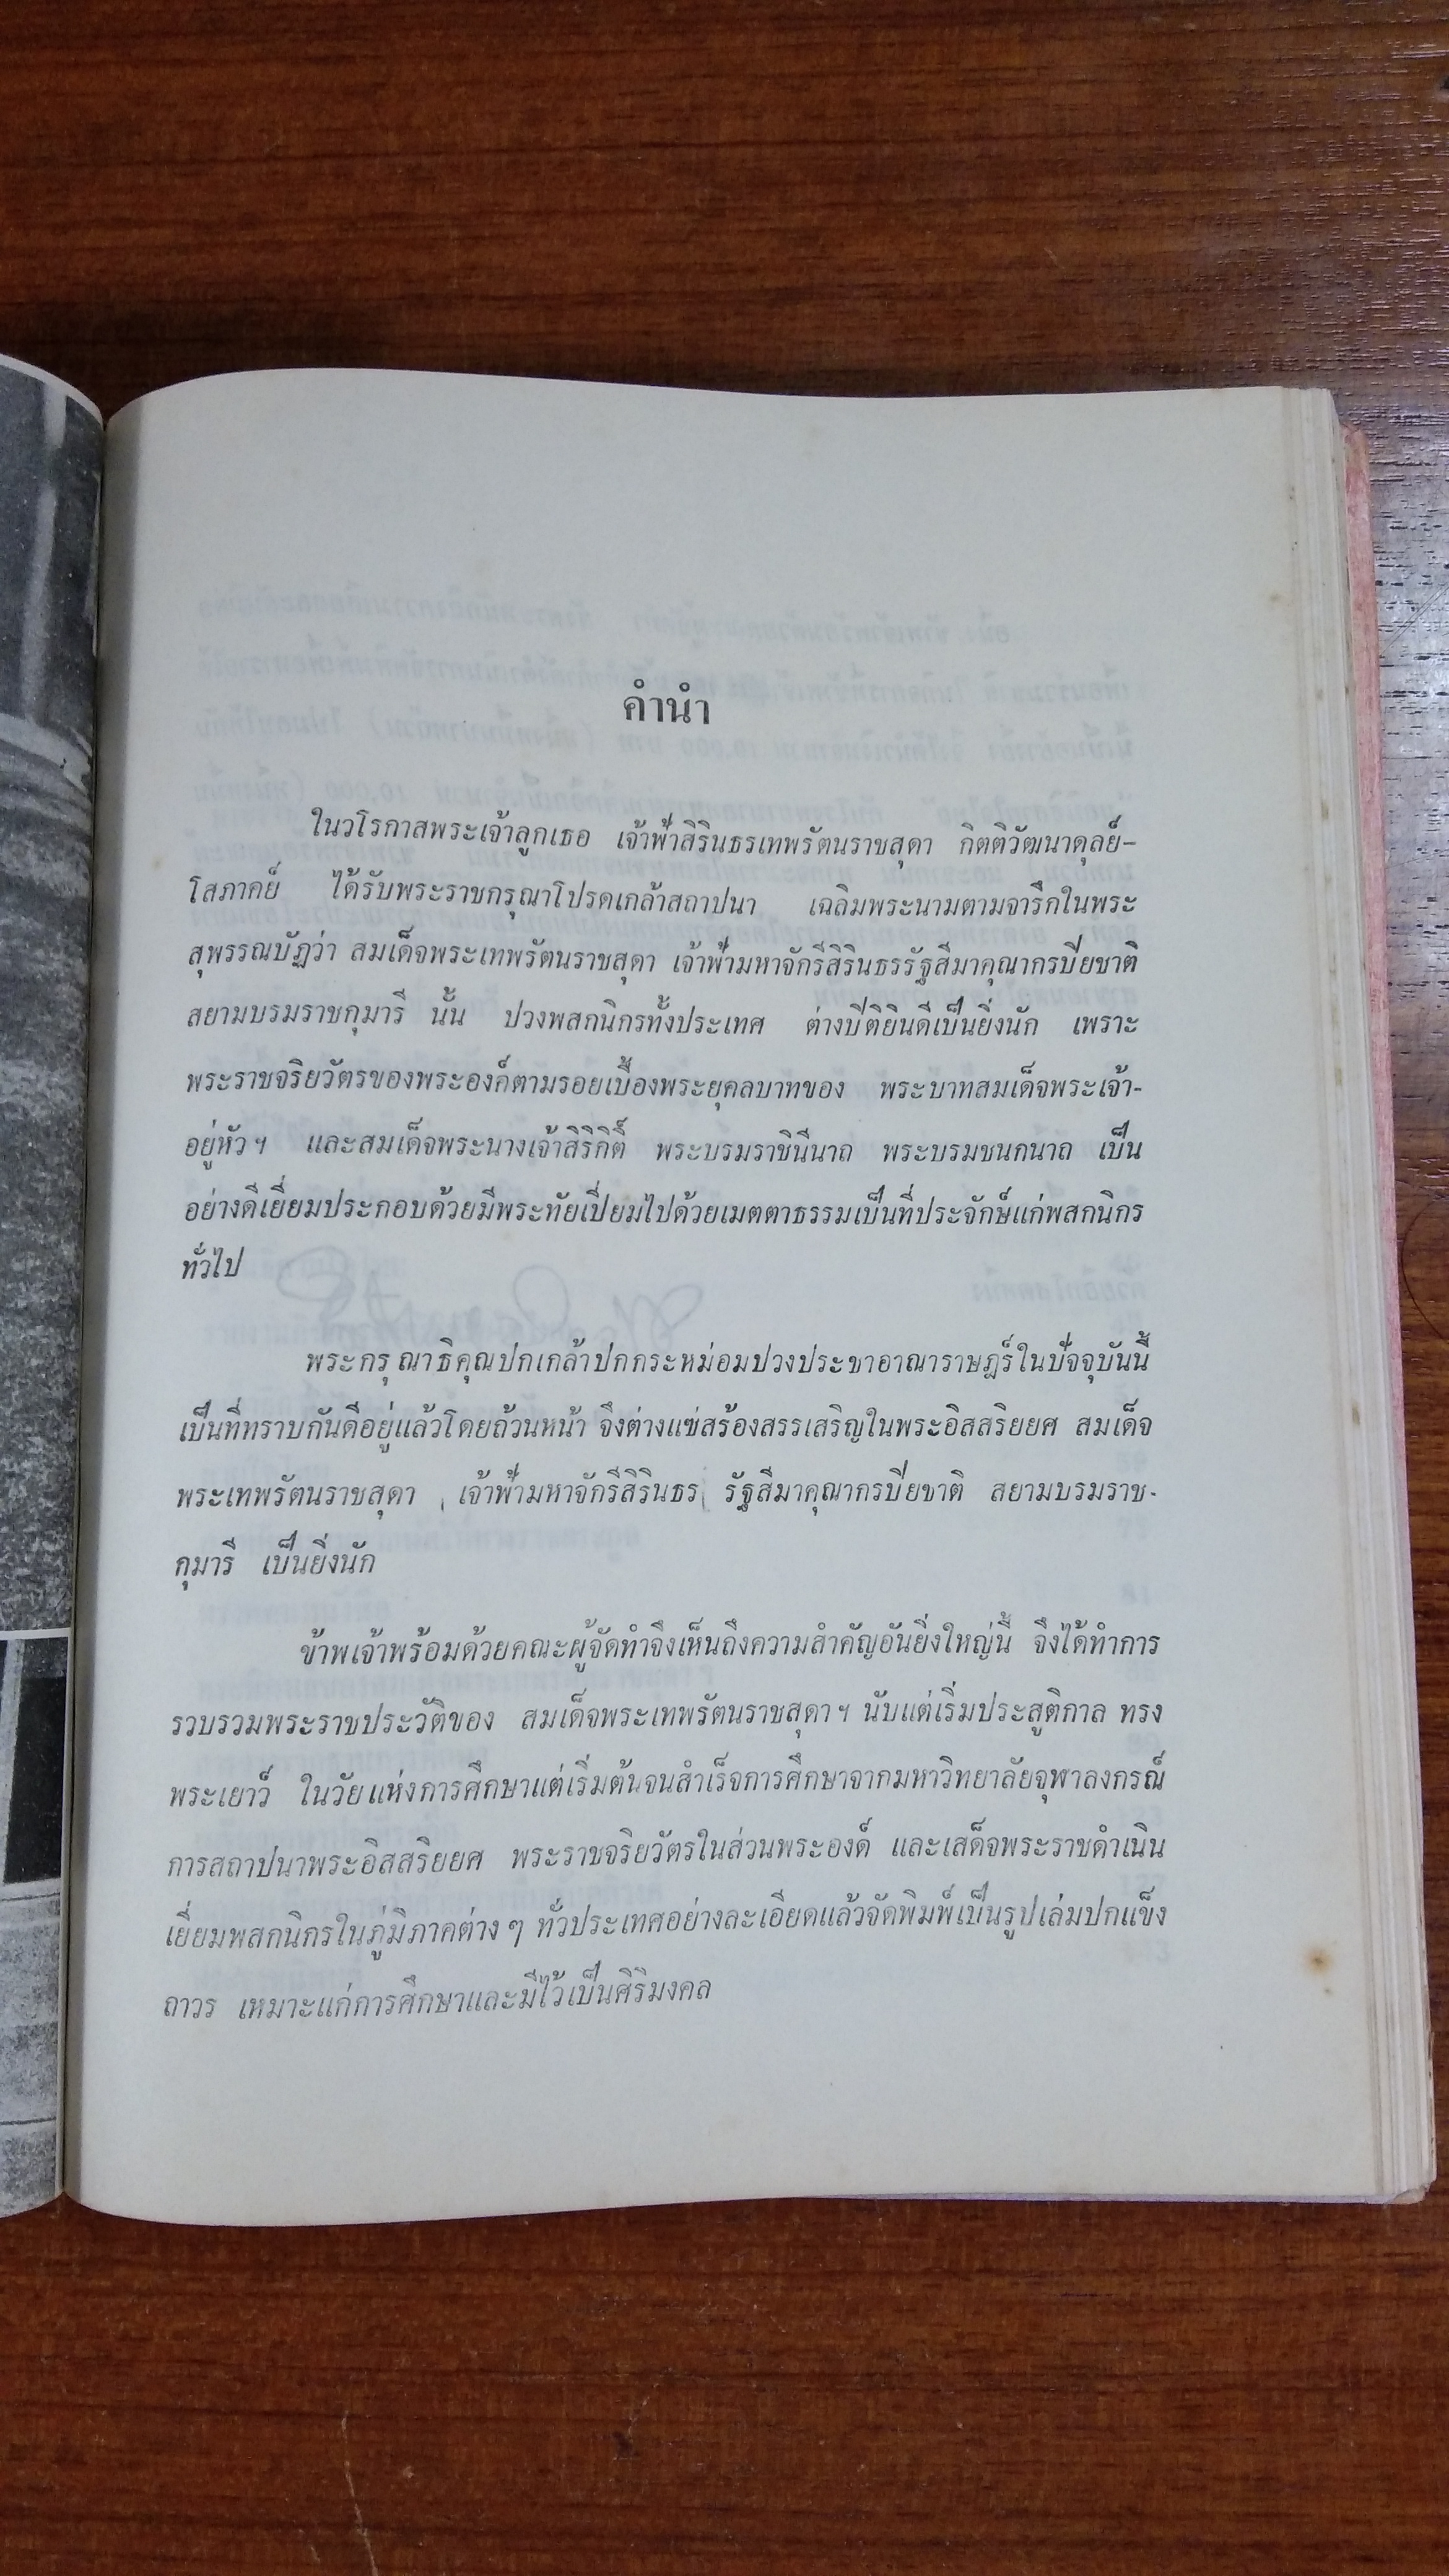 คำนำ
ในวโรกาสพระเจ้าลูกเธอ เจ้าฟ้าสิรินธรเทพรัตนราชสุดา กิตติวัฒนาดุลย์-
โสภาคย์ ได้รับพระราชกรุณาโปรดเกล้าสถาปนา เฉลิมพระนามตามจารึกในพระ
สุพรรณบัฏว่า สมเด็จพระเทพรัตนราชสุดา เจ้าฟ้ามหาจักรีสิรินธรรัฐสีมาคุณากรปิยชาติ
สยามบรมราชกุมารี นั้น ปวงพสกนิกรทั้งประเทศ ต่างปีติยินดีเป็นยิ่งนัก เพราะ
พระราชจริยวัตรของพระองค์ตามรอยเบื้องพระยุคลบาทของ พระบาทสมเด็จพระเจ้า-
อยู่หัวฯ และสมเด็จพระนางเจ้าสิริกิติ์ พระบรมราชินีนาถ พระบรมชนกนาถ เป็น
อย่างดีเยี่ยมประกอบด้วยมีพระทัยเปี่ยมไปด้วยเมตตาธรรมเป็นที่ประจักษ์แก่พสกนิกร
ทั่วไป
พระกรุณาธิคุณปกเกล้าปกกระหม่อมปวงประชาอาณาราษฎร์ในปัจจุบันนี้
เป็นที่ทราบกันดีอยู่แล้วโดยถ้วนหน้า จึงต่างแซ่สร้องสรรเสริญในพระอิสสริยยศ สมเด็จ
พระเทพรัตนราชสุดา เจ้าฟ้ามหาจักรีสิรินธร รัฐสีมาคุณากรปิยชาติ สยามบรมราช-
กุมารี เป็นยิ่งนัก
ข้าพเจ้าพร้อมด้วยคณะผู้จัดทำจึงเห็นถึงความสำคัญอันยิ่งใหญ่นี้ จึงได้ทำการ
รวบรวมพระราชประวัติของ สมเด็จพระเทพรัตนราชสุดาฯ นับแต่เริ่มประสูติกาล ทรง
พระเยาว์ ในวัยแห่งการศึกษาแต่เริ่มต้นจนสำเร็จการศึกษาจากมหาวิทยาลัยจุฬาลงกรณ์
การสถาปนาพระอิสสริยยศ พระราชจริยวัตรในส่วนพระองค์ และเสด็จพระราชดำเนิน
เยี่ยมพสกนิกรในภูมิภาคต่างๆ ทั่วประเทศอย่างละเอียดแล้วจัดพิมพ์เป็นรูปเล่มปกแข็ง
ถาวร เหมาะแก่การศึกษาและมีไว้เป็นศิริมงคล